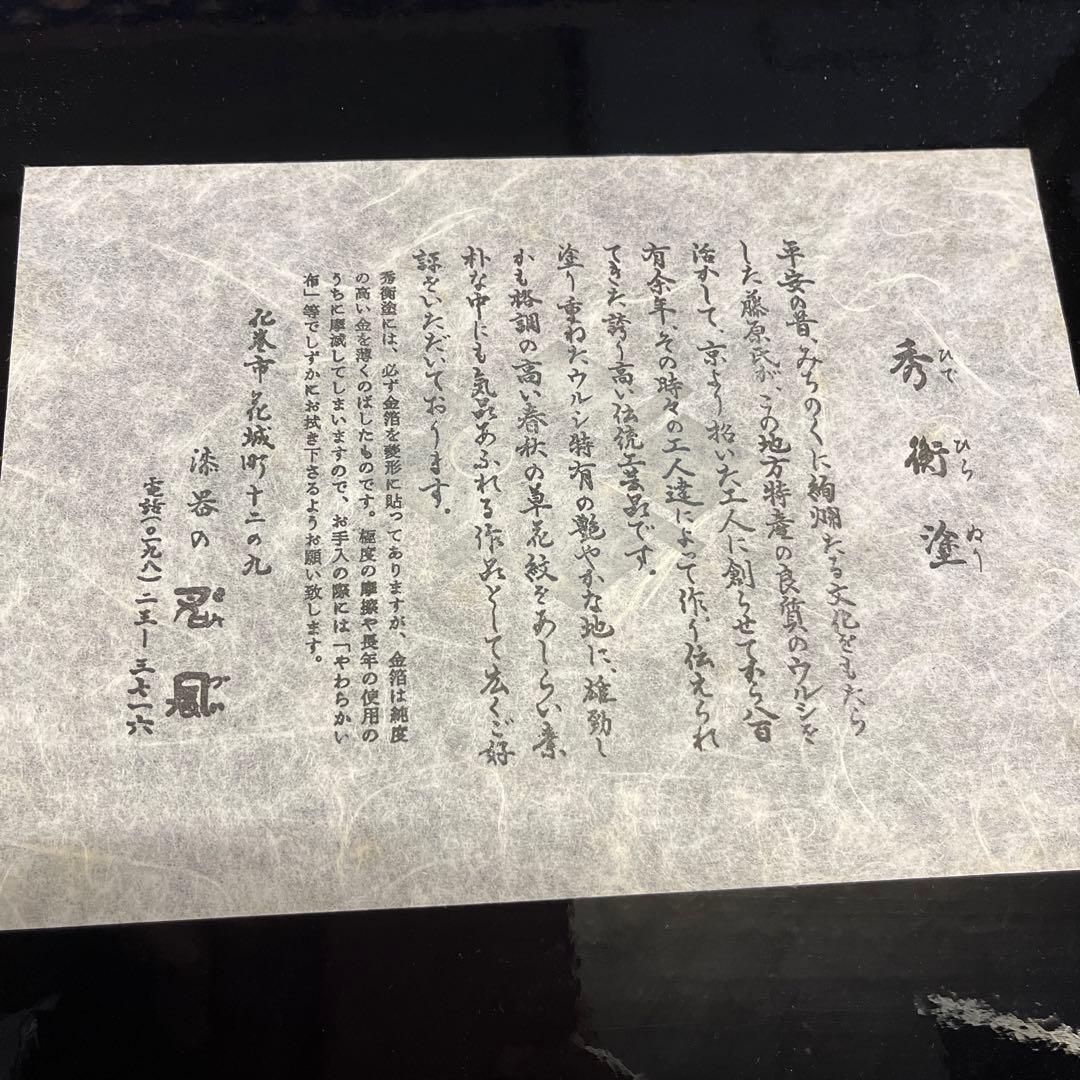 秀衡塗
ひで ひら ぬり
平安の昔、みちのくに絢爛たる文化をもたら
した藤原氏が、この地方特産の良質のウルシを
活かして、京より招いた工人に創らせてから八百
有余年、その時々の工人達によって作り伝えられ
てきた誇り高い伝統工芸品です。
塗り重ねたウルシ特有の艶やかな地に、雄勁し
かも格調の高い春秋の草花紋をあしらい素
朴な中にも気品あふれる作品として広くご好
評をいただいております。
秀衡塗には、必ず金箔を菱形に貼ってありますが、金箔は純度
の高い金を薄くのばしたものです。極度の摩擦や長年の使用の
うちに摩滅してしまいますので、お手入の際には「やわらかい
布」等でしずかにお拭き下さるようお願い致します。
花巻市花城町十二の九
漆器の
電話(〇一九八)二三ー三七一六